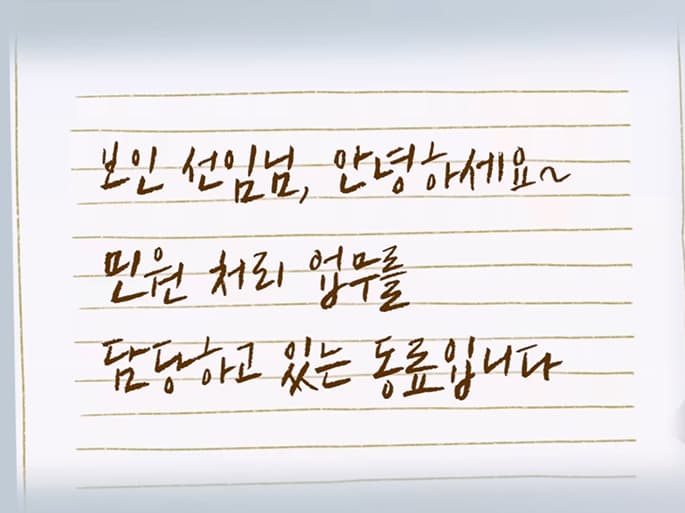 보인 선임님, 안녕하세요~
민원 처리 업무를
담당하고 있는 동료입니다